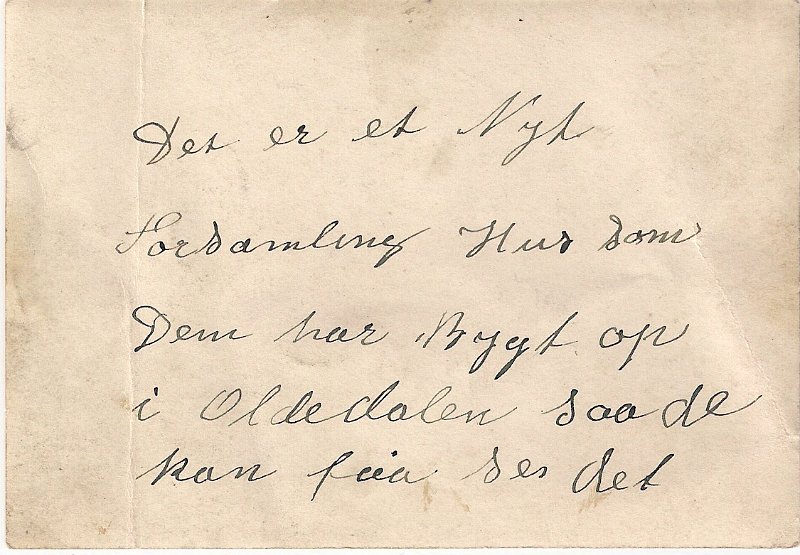 Det er et Nyt
Forsamling Hus som
Dem har Bygt op
i Oldedalen saa de
kan faa se det